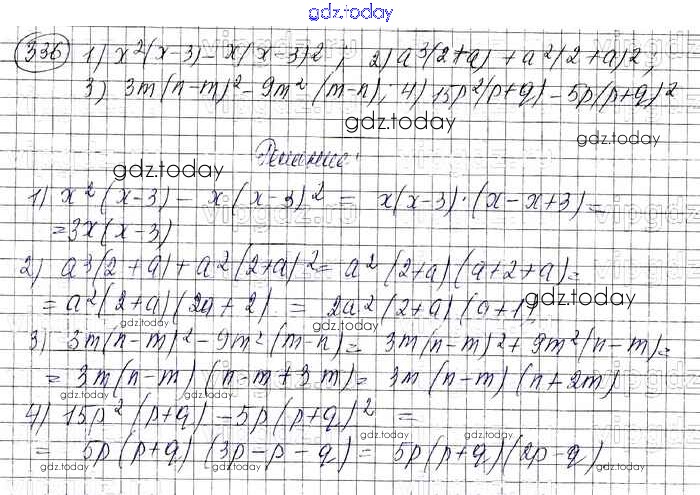 gdz.today
336 1) x²(x-3) - x(x-3)²; 2) a³(2+a) + a²(2+a)²;
3) 3m(n-m)² - 9m²(m-n); 4) 15p²(p+q) - 5p(p+q)²
gdz.today gdz.today
Решение:
gdz.today
1) x²(x-3) - x(x-3)² = x(x-3)·(x-x+3) =
= 3x(x-3)
2) a³(2+a) + a²(2+a)² = a²(2+a)(a+2+a) =
= a²(2+a)(2a+2) = 2a²(2+a)(a+1)
gdz.today gdz.today gdz.today
3) 3m(n-m)² - 9m²(m-n) = 3m(n-m)² + 9m²(n-m) =
= 3m(n-m)(n-m+3m) = 3m(n-m)(n+2m)
gdz.today gdz.today
4) 15p²(p+q) - 5p(p+q)² =
gdz.today
= 5p(p+q)(3p-p-q) = 5p(p+q)(2p-q)
gdz.today gdz.today